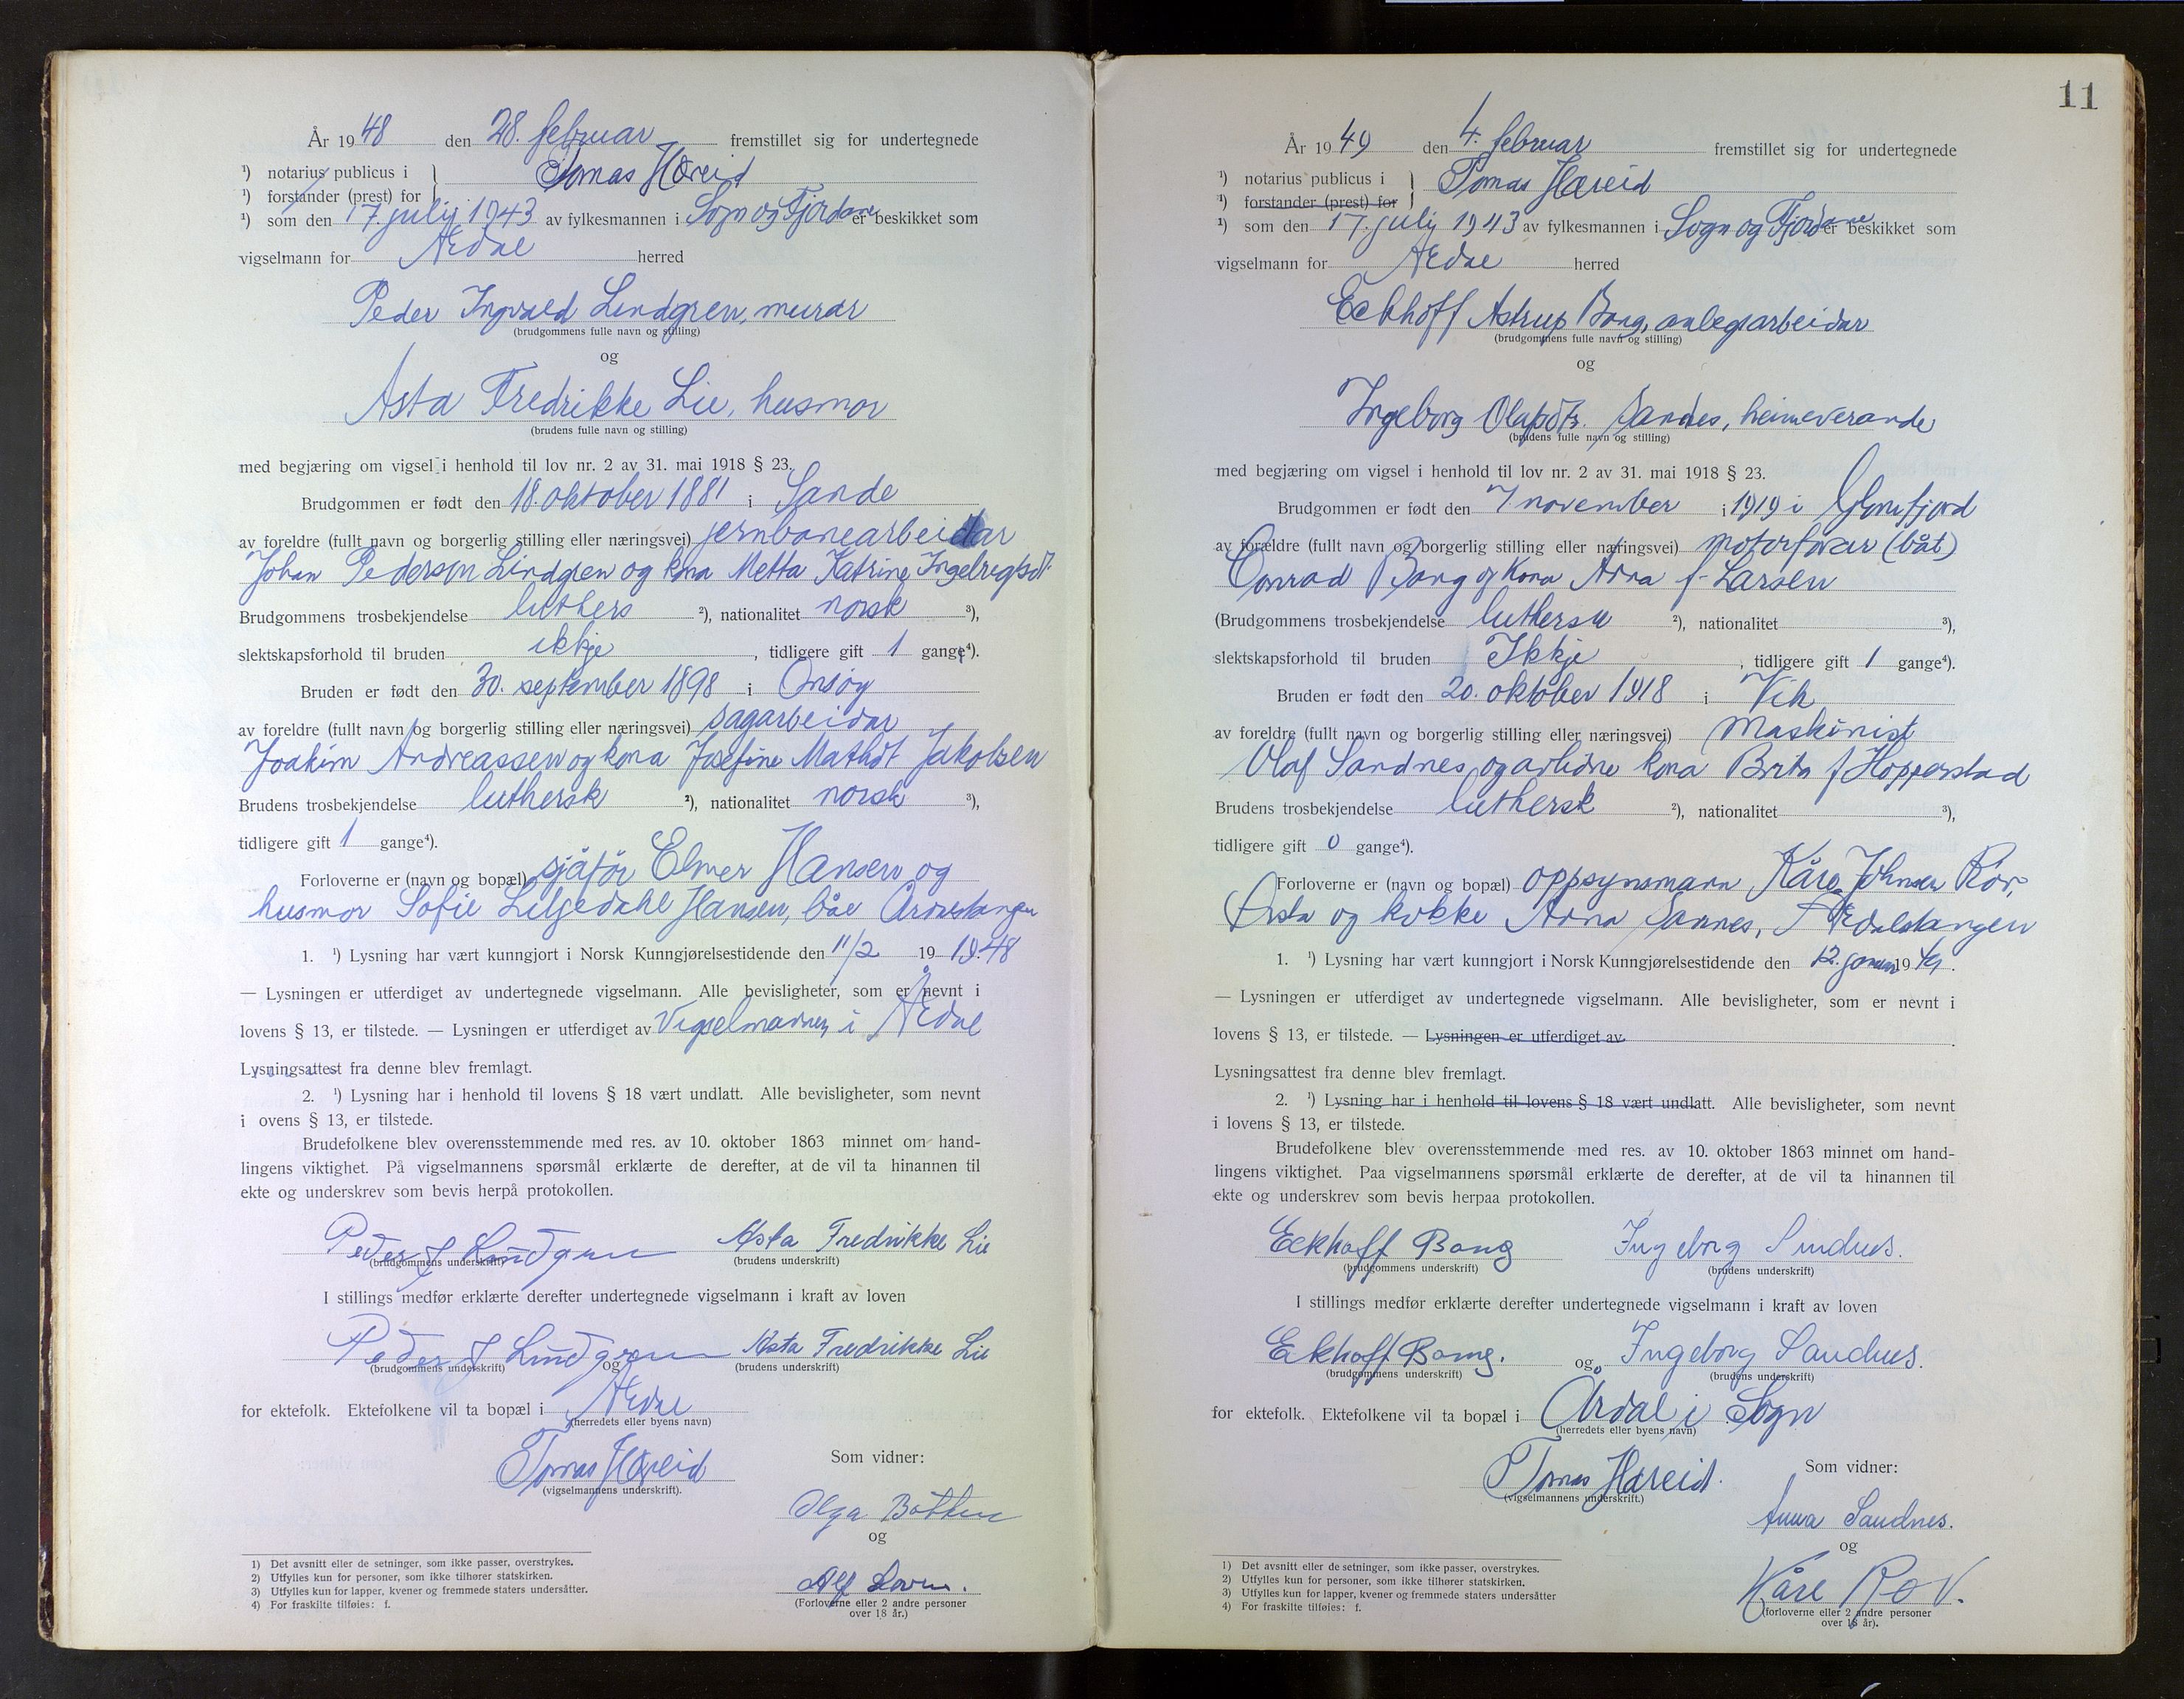 År 1948 den 28. februar fremstillet sig for undertegnede
¹) notarius publicus i } Tomas Hæreid
¹) forstander (prest) for
¹) som den 17. july 1943 av fylkesmannen i Sogn og Fjordane er beskikket som
vigselmann for Årdal herred
Peder Ingvald Lindgren, murar
(brudgommens fulle navn og stilling)
og
Asta Fredrikke Lie, husmor
(brudens fulle navn og stilling)
med begjæring om vigsel i henhold til lov nr. 2 av 31. mai 1918 § 23.
Brudgommen er født den 18. oktober 1881 i Sande
av foreldre (fullt navn og borgerlig stilling eller næringsvei) jernbanearbeidar
Johan Pederson Lindgren og kona Metta Katrine
Brudgommens trosbekjendelse luthers ²), nationalitet norsk ³),
slektskapsforhold til bruden ikkje , tidligere gift 1 gange⁴).
Bruden er født den 30. september 1898 i Onsøy
av foreldre (fullt navn og borgerlig stilling eller næringsvei) sagarbeidar
Joakim Andreassen og kona Josefine Mathilt Jakobsen
Brudens trosbekjendelse luthersk ²), nationalitet norsk ³),
tidligere gift 1 gange⁴).
Forloverne er (navn og bopæl) sjåfør Elmer Hansen og
husmor Sofie Liljedahl Hansen, båe Årdalstangen
1. ¹) Lysning har vært kunngjort i Norsk Kunngjørelsestidende den 11/2 19 1948
— Lysningen er utferdiget av undertegnede vigselmann. Alle bevisligheter, som er nevnt i
lovens § 13, er tilstede. — Lysningen er utferdiget av Vigselmannen i Årdal
Lysningsattest fra denne blev fremlagt.
2. ¹) Lysning har i henhold til lovens § 18 vært undlatt. Alle bevisligheter, som nevnt
i ovens § 13, er tilstede.
Brudefolkene blev overensstemmende med res. av 10. oktober 1863 minnet om hand-
lingens viktighet. På vigselmannens spørsmål erklærte de derefter, at de vil ta hinannen til
ekte og underskrev som bevis herpå protokollen.
Peder I Lindgren Asta Fredrikke Lie
(brudgommens underskrift) (brudens underskrift)
I stillings medfør erklærte derefter undertegnede vigselmann i kraft av loven
Peder I Lindgren og Asta Fredrikke Lie
(brudgommens underskrift) (brudens underskrift)
for ektefolk. Ektefolkene vil ta bopæl i Årdal
(herredets eller byens navn)
Tomas Hæreid Som vidner:
(vigselmannens underskrift).
Olga Bøtten
og
Alf
(Forloverne eller 2 andre personer
over 18 år.)
1) Det avsnitt eller de setninger, som ikke passer, overstrykes.
2) Utfylles kun for personer, som ikke tilhører statskirken.
3) Utfylles kun for lapper, kvener og fremmede staters undersåtter.
4) For fraskilte tilføies: f.
11
År 1949 den 4. februar fremstillet sig for undertegnede
¹) notarius publicus i } Tomas Hæreid
¹) forstander (prest) for
¹) som den 17. july 1943 av fylkesmannen i Sogn og Fjordane er beskikket som
vigselmann for Årdal herred
Eckhoff Astrup Bang, anlegsarbeidar
(brudgommens fulle navn og stilling)
og
Ingeborg Olafsdtr. Sandnes, heimeverande
(brudens fulle navn og stilling)
med begjæring om vigsel i henhold til lov nr. 2 av 31. mai 1918 § 23.
Brudgommen er født den 7 november i 1919 i Glomfjord
av forældre (fullt navn og borgerlig stilling eller næringsvei) motorførar (båt)
Conrad Bang og kona Anna f. Larsen
(Brudgommens trosbekjendelse luthersk ²), nationalitet ³),
slektskapsforhold til bruden Ikkje , tidligere gift 1 gange⁴).
Bruden er født den 20. oktober 1918 i Vik
av foreldre (fullt navn og borgerlig stilling eller næringsvei) Maskinist
Olaf Sandnes og avlidne kona Brita f Hopperstad
Brudens trosbekjendelse luthersk ²), nationalitet ³),
tidligere gift 0 gange⁴).
Forloverne er (navn og bopæl) oppsynsmann Kåre Johnsen Røv,
Ørsta og kokke Anna Sannes, Årdalstangen
1. ¹) Lysning har vært kunngjort i Norsk Kunngjørelsestidende den 12. januar 1949.
— Lysningen er utferdiget av undertegnede vigselmann. Alle bevisligheter, som er nevnt i
lovens § 13, er tilstede. — Lysningen er utferdiget av
Lysningsattest fra denne blev fremlagt.
2. ¹) Lysning har i henhold til lovens § 18 vært undlatt. Alle bevisligheter, som nevnt
i lovens § 13, er tilstede.
Brudefolkene blev overensstemmende med res. av 10. oktober 1863 minnet om hand-
lingens viktighet. Paa vigselmannens spørsmål erklærte de derefter, at de vil ta hinannen til
ekte og underskrev som bevis herpaa protokollen.
Eckhoff Bang Ingeborg Sandnes.
(brudgommens underskrift) (brudens underskrift)
I stillings medfør erklærte derefter undertegnede vigselmann i kraft av loven
Eckhoff Bang. og Ingeborg Sandnes.
(brudgommens underskrift) (brudens underskrift)
for ektefolk. Ektefolkene vil ta bopæl i Årdal i Sogn
(herredets eller byens navn)
Tomas Hæreid. Som vidner:
(vigselmannens underskrift.)
Anna Sandnes.
og
Kåre Røv.
(forloverne eller 2 andre personer
over 18 år).
1) Det avsnitt eller de setninger, som ikke passer, overstrykes.
2) Utfylles kun for personer, som ikke tilhører statskirken.
3) Utfylles kun for lapper, kvener og fremmede staters undersåtter
4) For fraskilte tilføies: f.